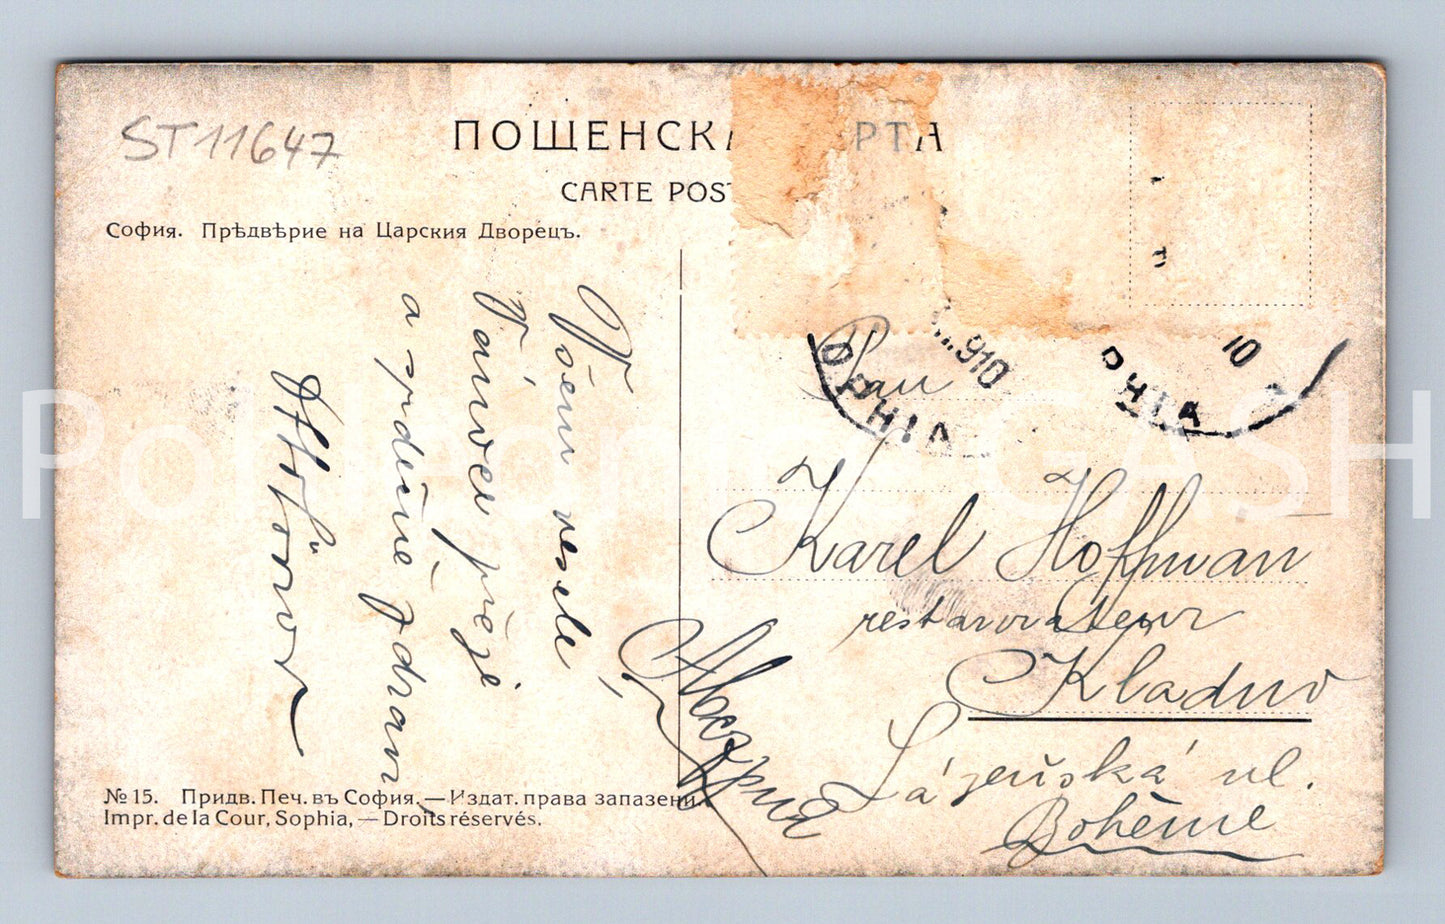 ST11647
ПОЩЕНСКА КАРТА
CARTE POST
София. Прѣдвѣрие на Царския Дворецъ.
Všem veselé
Vánoce přeje
a srdečně zdraví
Pan
OPHIA
910
PHIA
10
Karel Hoffman
restaurateur
Kladno
Lázeňská ul.
Bohême
Австрия
№ 15. Придв. Печ. въ София. — Издат. права запазени.
Impr. de la Cour, Sophia, — Droits réservés.
GASH